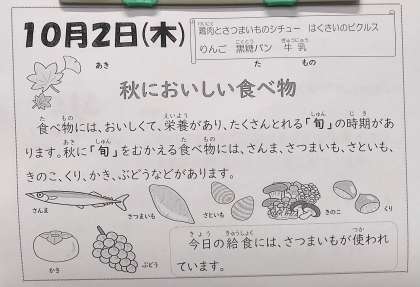 10月2日(木)
鶏肉とさつまいものシチュー　はくさいのピクルス
りんご　黒糖パン　牛乳
秋においしい食べ物
食べ物には、おいしくて、栄養があり、たくさんとれる「旬」の時期があ
ります。秋に「旬」をむかえる食べ物には、さんま、さつまいも、さといも、
きのこ、くり、かき、ぶどうなどがあります。
さんま
さつまいも
さといも
きのこ
くり
かき
ぶどう
今日の給食には、さつまいもが使われ
ています。